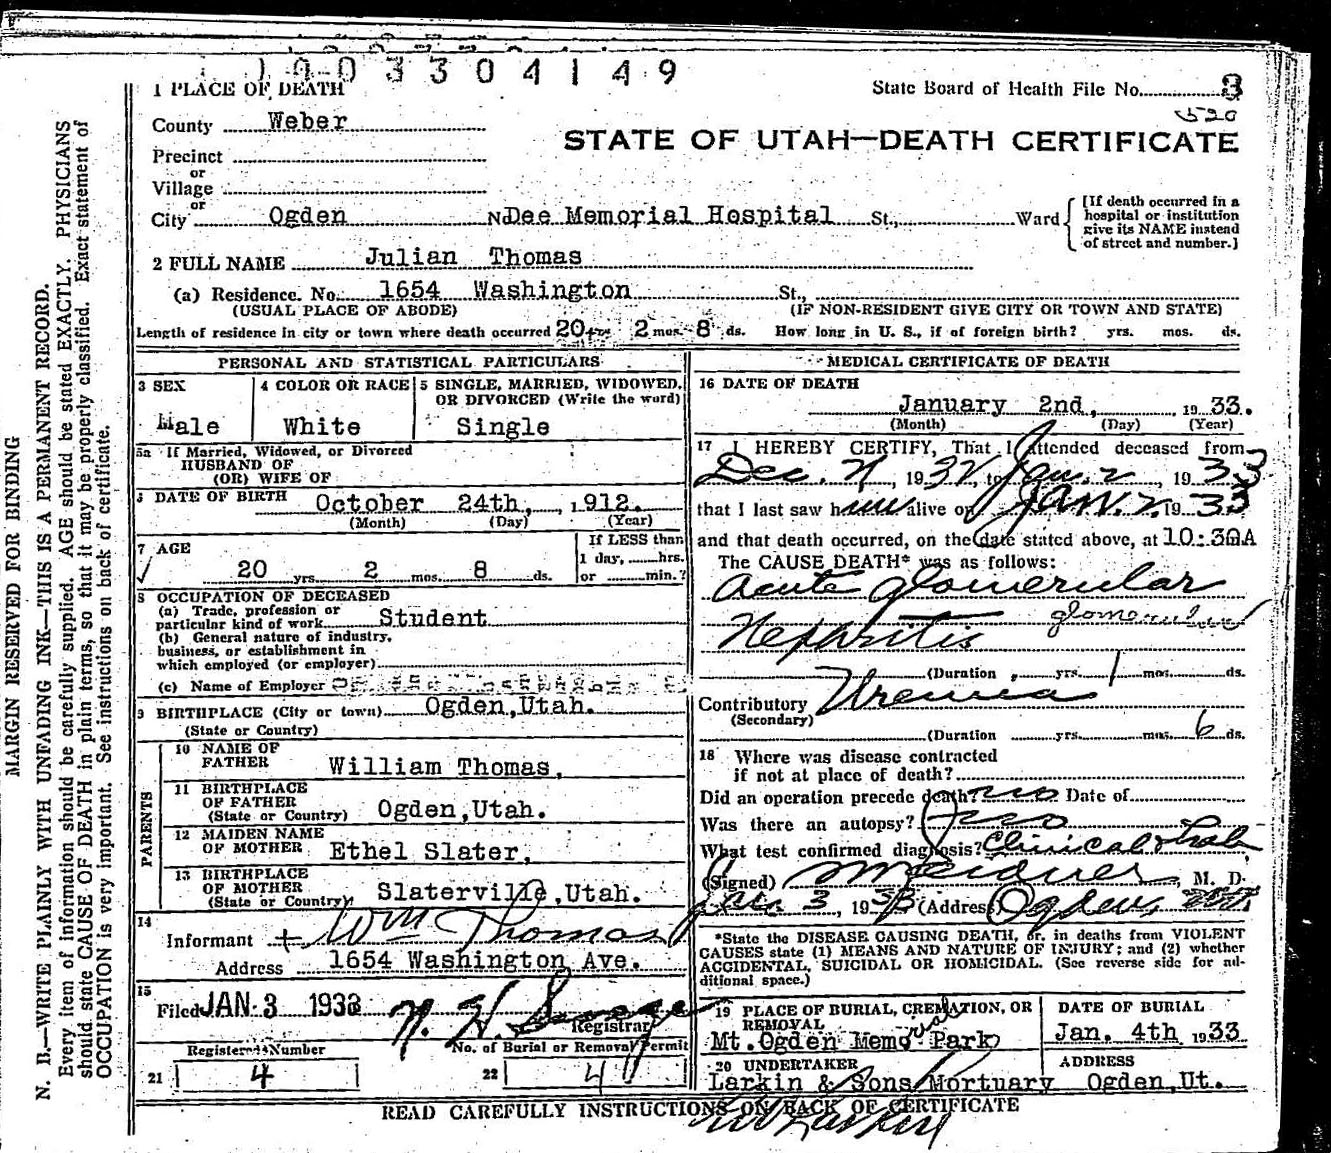 1003304149
1 PLACE OF DEATH
State Board of Health File No. 3
520
County Weber
STATE OF UTAH—DEATH CERTIFICATE
Precinct
or
Village
or
City Ogden No. Dee Memorial Hospital St., Ward
[If death occurred in a
hospital or institution
give its NAME instead
of street and number.]
2 FULL NAME Julian Thomas
(a) Residence. No. 1654 Washington St.,
(USUAL PLACE OF ABODE) (IF NON-RESIDENT GIVE CITY OR TOWN AND STATE)
Length of residence in city or town where death occurred 20 yrs. 2 mos. 8 ds. How long in U. S., if of foreign birth? yrs. mos. ds.
PERSONAL AND STATISTICAL PARTICULARS
3 SEX
Male
4 COLOR OR RACE
White
5 SINGLE, MARRIED, WIDOWED,
OR DIVORCED (Write the word)
Single
5a If Married, Widowed, or Divorced
HUSBAND OF
(OR) WIFE OF
DATE OF BIRTH October 24th, 1912.
(Month) (Day) (Year)
7 AGE
20 yrs. 2 mos. 8 ds.
If LESS than
1 day, hrs.
or min.?
8 OCCUPATION OF DECEASED
(a) Trade, profession or
particular kind of work Student
(b) General nature of industry,
business, or establishment in
which employed (or employer)
(c) Name of Employer
9 BIRTHPLACE (City or town) Ogden, Utah.
(State or Country)
PARENTS
10 NAME OF
FATHER William Thomas,
11 BIRTHPLACE
OF FATHER
(State or Country) Ogden, Utah.
12 MAIDEN NAME
OF MOTHER Ethel Slater,
13 BIRTHPLACE
OF MOTHER
(State or Country) Slaterville, Utah.
14
Informant + Wm Thomas
Address 1654 Washington Ave.
15
Filed JAN 3 1933 N. H.
Registrar
Registered Number
21 4
No. of Burial or Removal Permit
22 4
MEDICAL CERTIFICATE OF DEATH
16 DATE OF DEATH
January 2nd, 1933.
(Month) (Day) (Year)
17 I HEREBY CERTIFY, That I attended deceased from
Dec. , 1932, to Jan. 2, 1933
that I last saw him alive on Jan. 2, 1933
and that death occurred, on the date stated above, at 10:30A
The CAUSE DEATH* was as follows:
Acute glomerular
Nephritis glomerular
(Duration yrs. 1 mos. ds.
Contributory Uremia
(Secondary)
(Duration yrs. mos. 6 ds.
18 Where was disease contracted
if not at place of death?
Did an operation precede death? no Date of
Was there an autopsy? no
What test confirmed diagnosis? Clinical &
(Signed) , M. D.
Jan 3, 1933 (Address) Ogden,
*State the DISEASE CAUSING DEATH, or, in deaths from VIOLENT
CAUSES state (1) MEANS AND NATURE OF INJURY; and (2) whether
ACCIDENTAL, SUICIDAL OR HOMICIDAL. (See reverse side for ad-
ditional space.)
19 PLACE OF BURIAL, CREMATION, OR
REMOVAL
Mt. Ogden Memorial Park
DATE OF BURIAL
Jan. 4th, 1933
20 UNDERTAKER
Larkin & Sons Mortuary
ADDRESS
Ogden, Ut.
READ CAREFULLY INSTRUCTIONS ON BACK OF CERTIFICATE
MARGIN RESERVED FOR BINDING
N. B.—WRITE PLAINLY WITH UNFADING INK—THIS IS A PERMANENT RECORD.
Every item of information should be carefully supplied. AGE should be stated EXACTLY. PHYSICIANS
should state CAUSE OF DEATH in plain terms, so that it may be properly classified. Exact statement of
OCCUPATION is very important. See instructions on back of certificate.